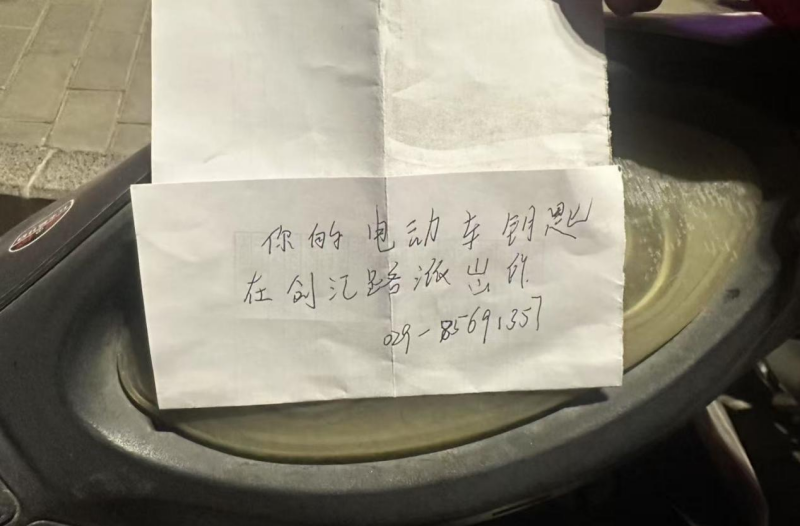 你的电动车钥匙
在创汇路派出所
029-85691357